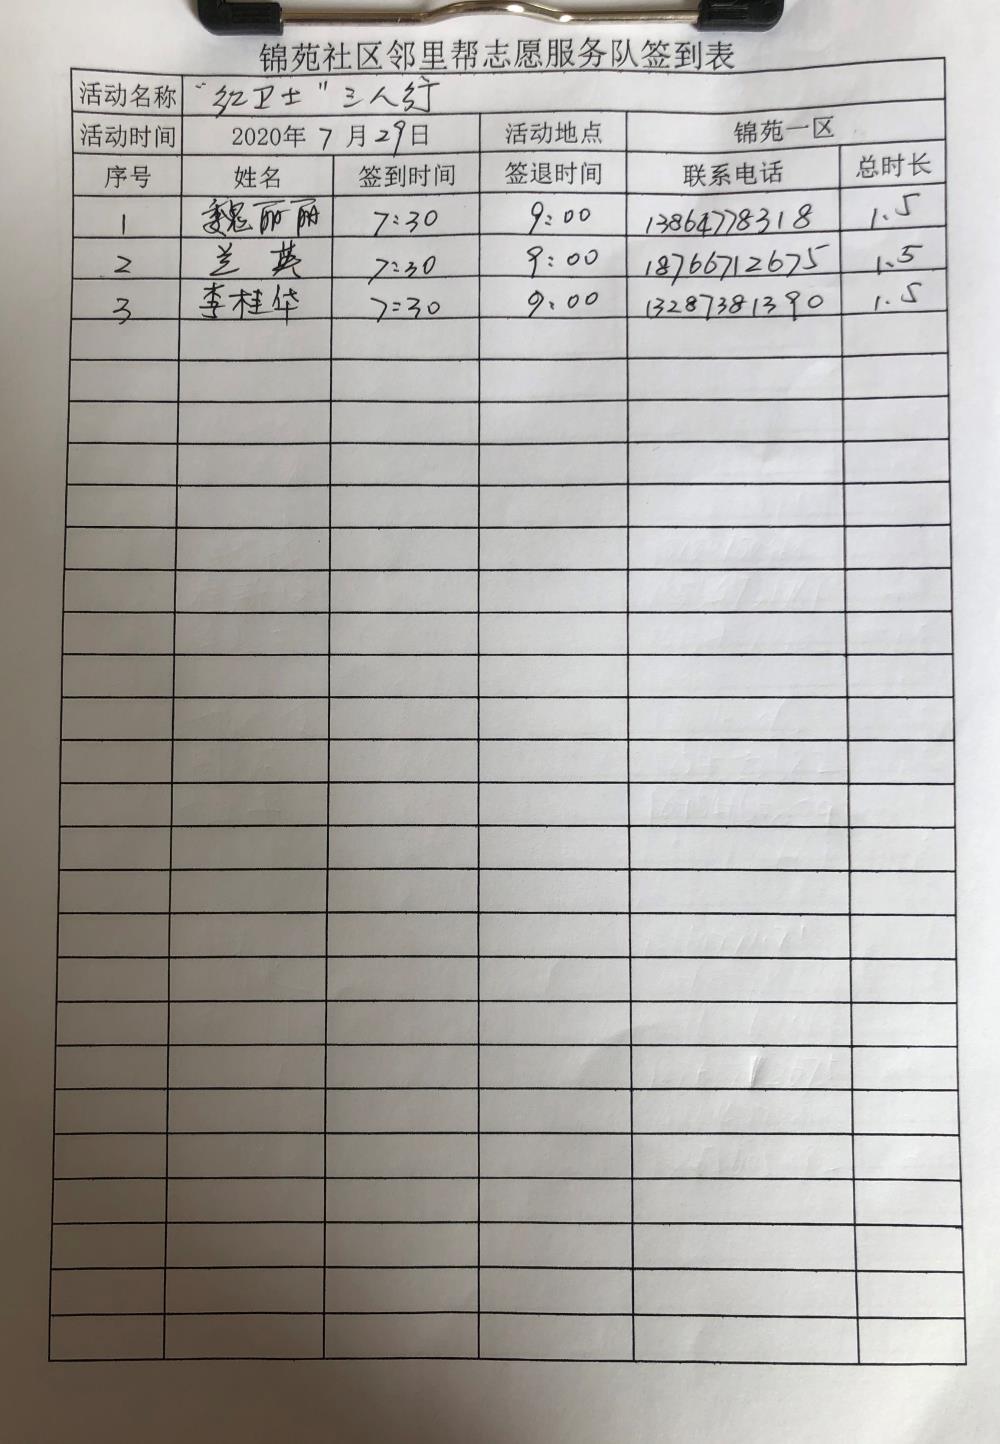 锦苑社区邻里帮志愿服务队签到表
活动名称 “红卫士”三人行
活动时间 2020年 7 月 29日 活动地点 锦苑一区
序号 姓名 签到时间 签退时间 联系电话 总时长
1 魏丽丽 7:30 9:00 13864778318 1.5
2 兰英 7:30 9:00 18766712675 1.5
3 李桂华 7:30 9:00 13287381390 1.5